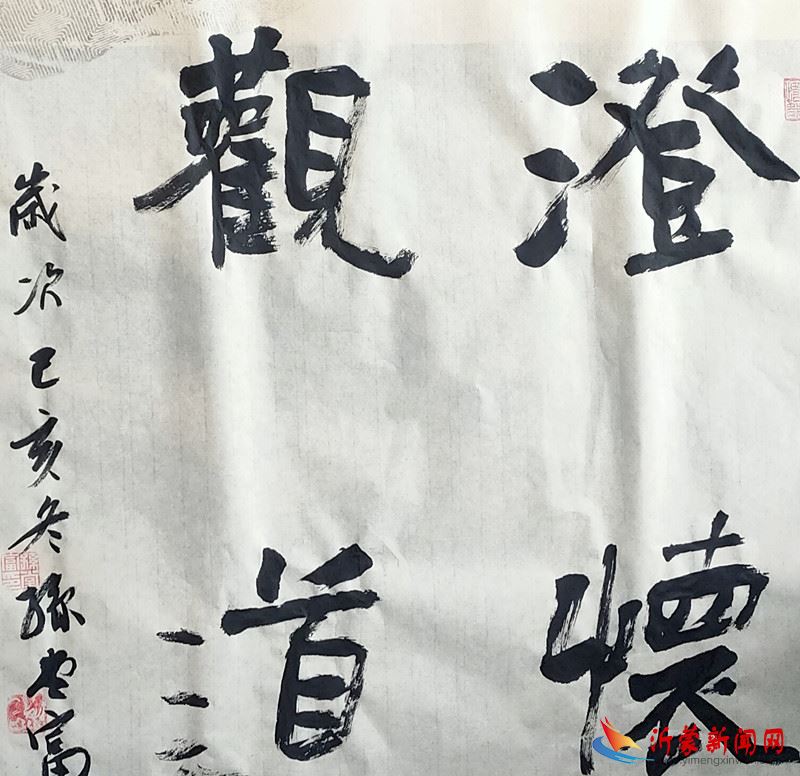 澄懷
觀道
歲次己亥冬孫富
沂蒙新闻网